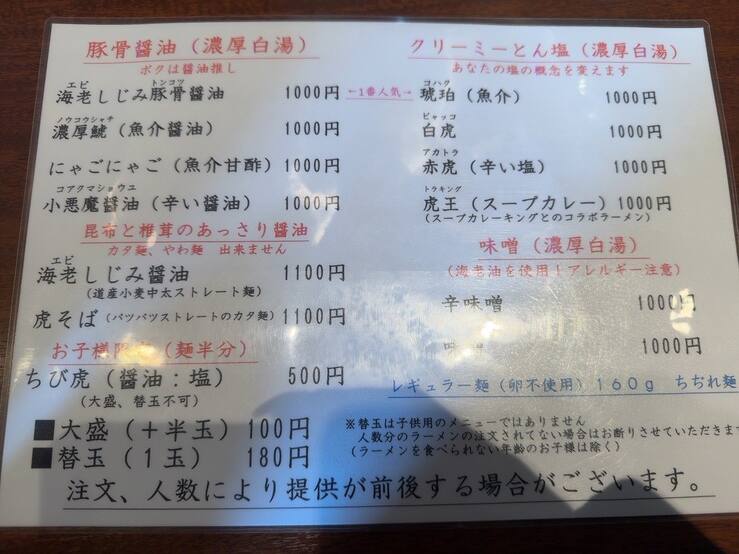 豚骨醤油（濃厚白湯）
ボクは醤油推し
エビ トンコツ
海老しじみ豚骨醤油 1000円
←1番人気→
ノウコウシャチ
濃厚鯱（魚介醤油） 1000円
にゃごにゃご（魚介甘酢） 1000円
コアクマショウユ
小悪魔醤油（辛い醤油） 1000円
昆布と椎茸のあっさり醤油
カタ麺、やわ麺 出来ません
エビ
海老しじみ醤油 1100円
（道産小麦中太ストレート麺）
虎そば（パツパツストレートのカタ麺） 1100円
お子様（麺半分）
ちび虎（醤油：塩） 500円
（大盛、替玉不可）
■大盛（＋半玉） 100円
■替玉（1玉） 180円
クリーミーとん塩（濃厚白湯）
あなたの塩の概念を変えます
コハク
琥珀（魚介） 1000円
ビャッコ
白虎 1000円
アカトラ
赤虎（辛い塩） 1000円
トラキング
虎王（スープカレー） 1000円
（スープカレーキングとのコラボラーメン）
味噌（濃厚白湯）
（海老油を使用！アレルギー注意）
辛味噌 1000円
1000円
レギュラー麺（卵不使用）160g ちぢれ麺
※替玉は子供用のメニューではありません
人数分のラーメンの注文されてない場合はお断りさせていただきます
（ラーメンを食べられない年齢のお子様は除く）
注文、人数により提供が前後する場合がございます。